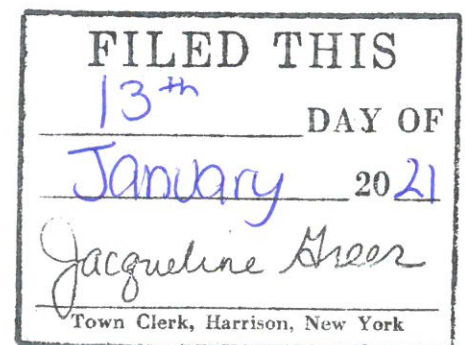 FILED THIS
13th
DAY OF
January 2021
Jacqueline Greer
Town Clerk, Harrison, New York